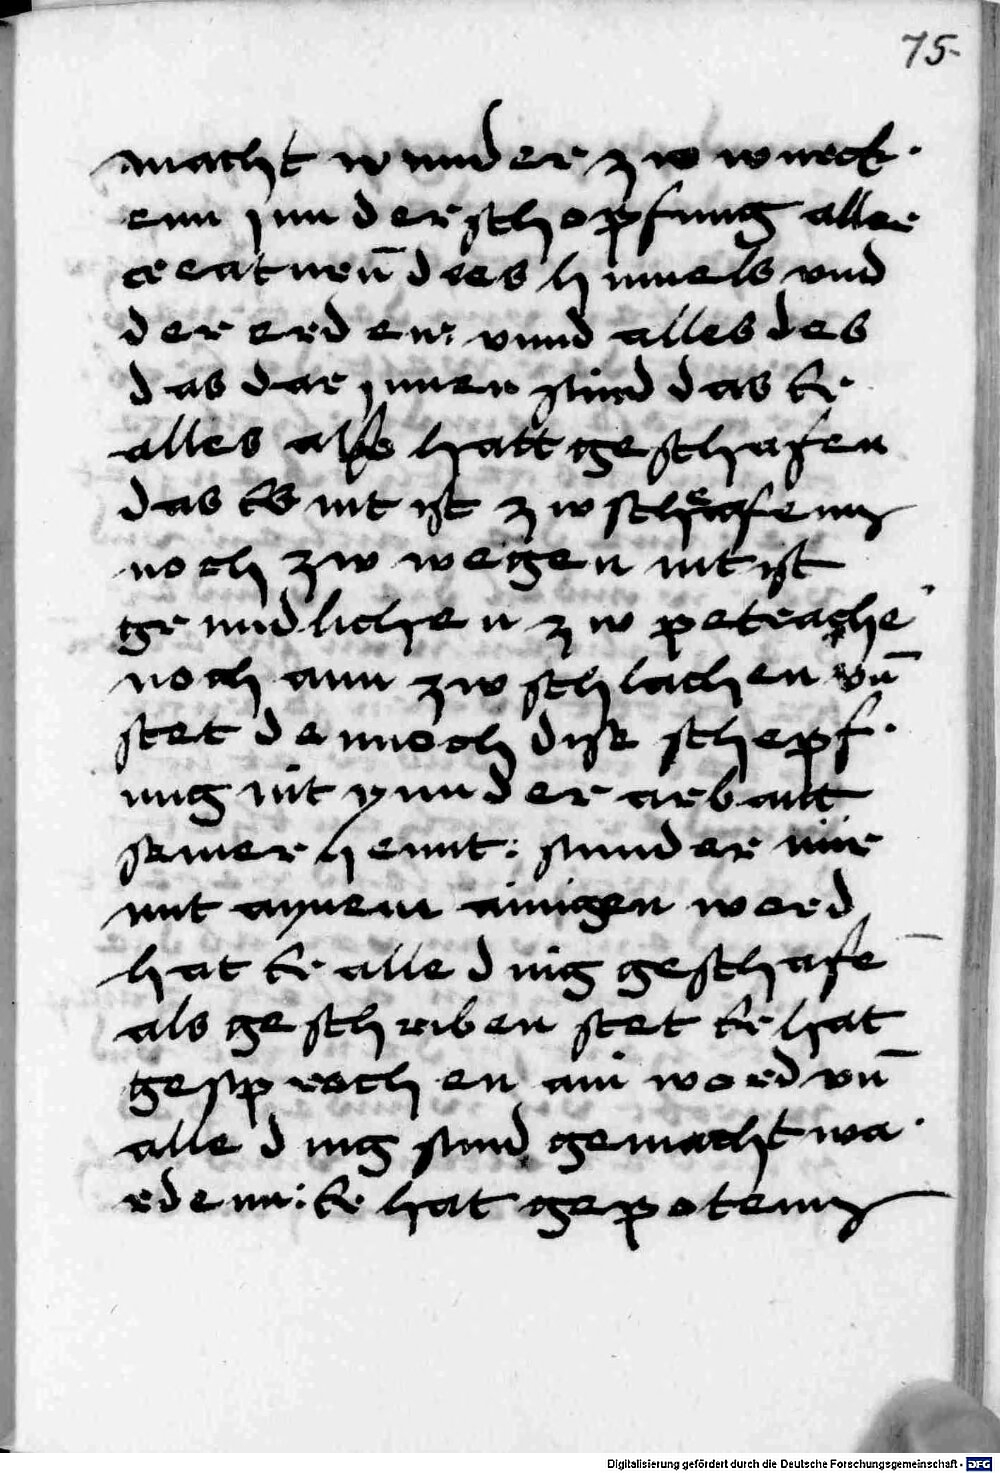 75.
macht wunder zw wurck·
enn jnn der schopfung aller
creaturn̄ dees himels vnd
der erden: vnnd alles des
das dar jnnen sind das Er
alles also hatt geschafen
das Es nit ist zw schepfenn
noch zw wegen nit ist
grundlichen zw petrache
noch ann zw schlachen vn̄
stet dennoch dise schepf·
ung nit ynn der arbaitt
seiner hennt: sunder nur
mit aynem ainigen word
hat Er alle ding geschafe
als geschriben stet Er hat
gesprochen ain word vn̄
alle ding sind gemacht wa·
rdenn: Er hat gepotenn
Digitalisierung gefördert durch die Deutsche Forschungsgemeinschaft - DFG